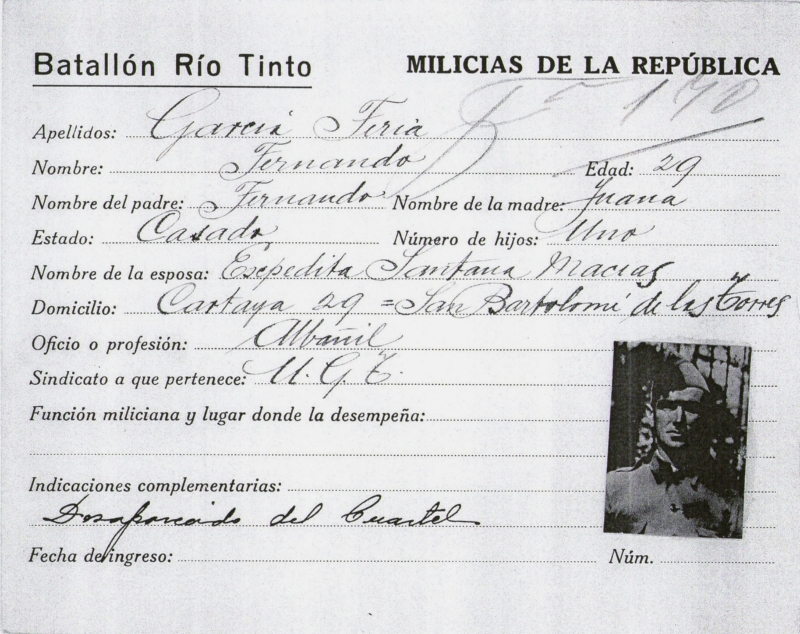 Batallón Río Tinto MILICIAS DE LA REPÚBLICA
Apellidos: García Feria
Nombre: Fernando Edad: 29
Nombre del padre: Fernando Nombre de la madre: Juana
Estado: Casado Número de hijos: Uno
Nombre de la esposa: Esepedita Santana Macias
Domicilio: Cartaya 29 = San Bartolomé de las Torres
Oficio o profesión: Albañil
Sindicato a que pertenece: U.G.T.
Función miliciana y lugar donde la desempeña:
Indicaciones complementarias:
Desaparecido del Cuartel
Fecha de ingreso: Núm.